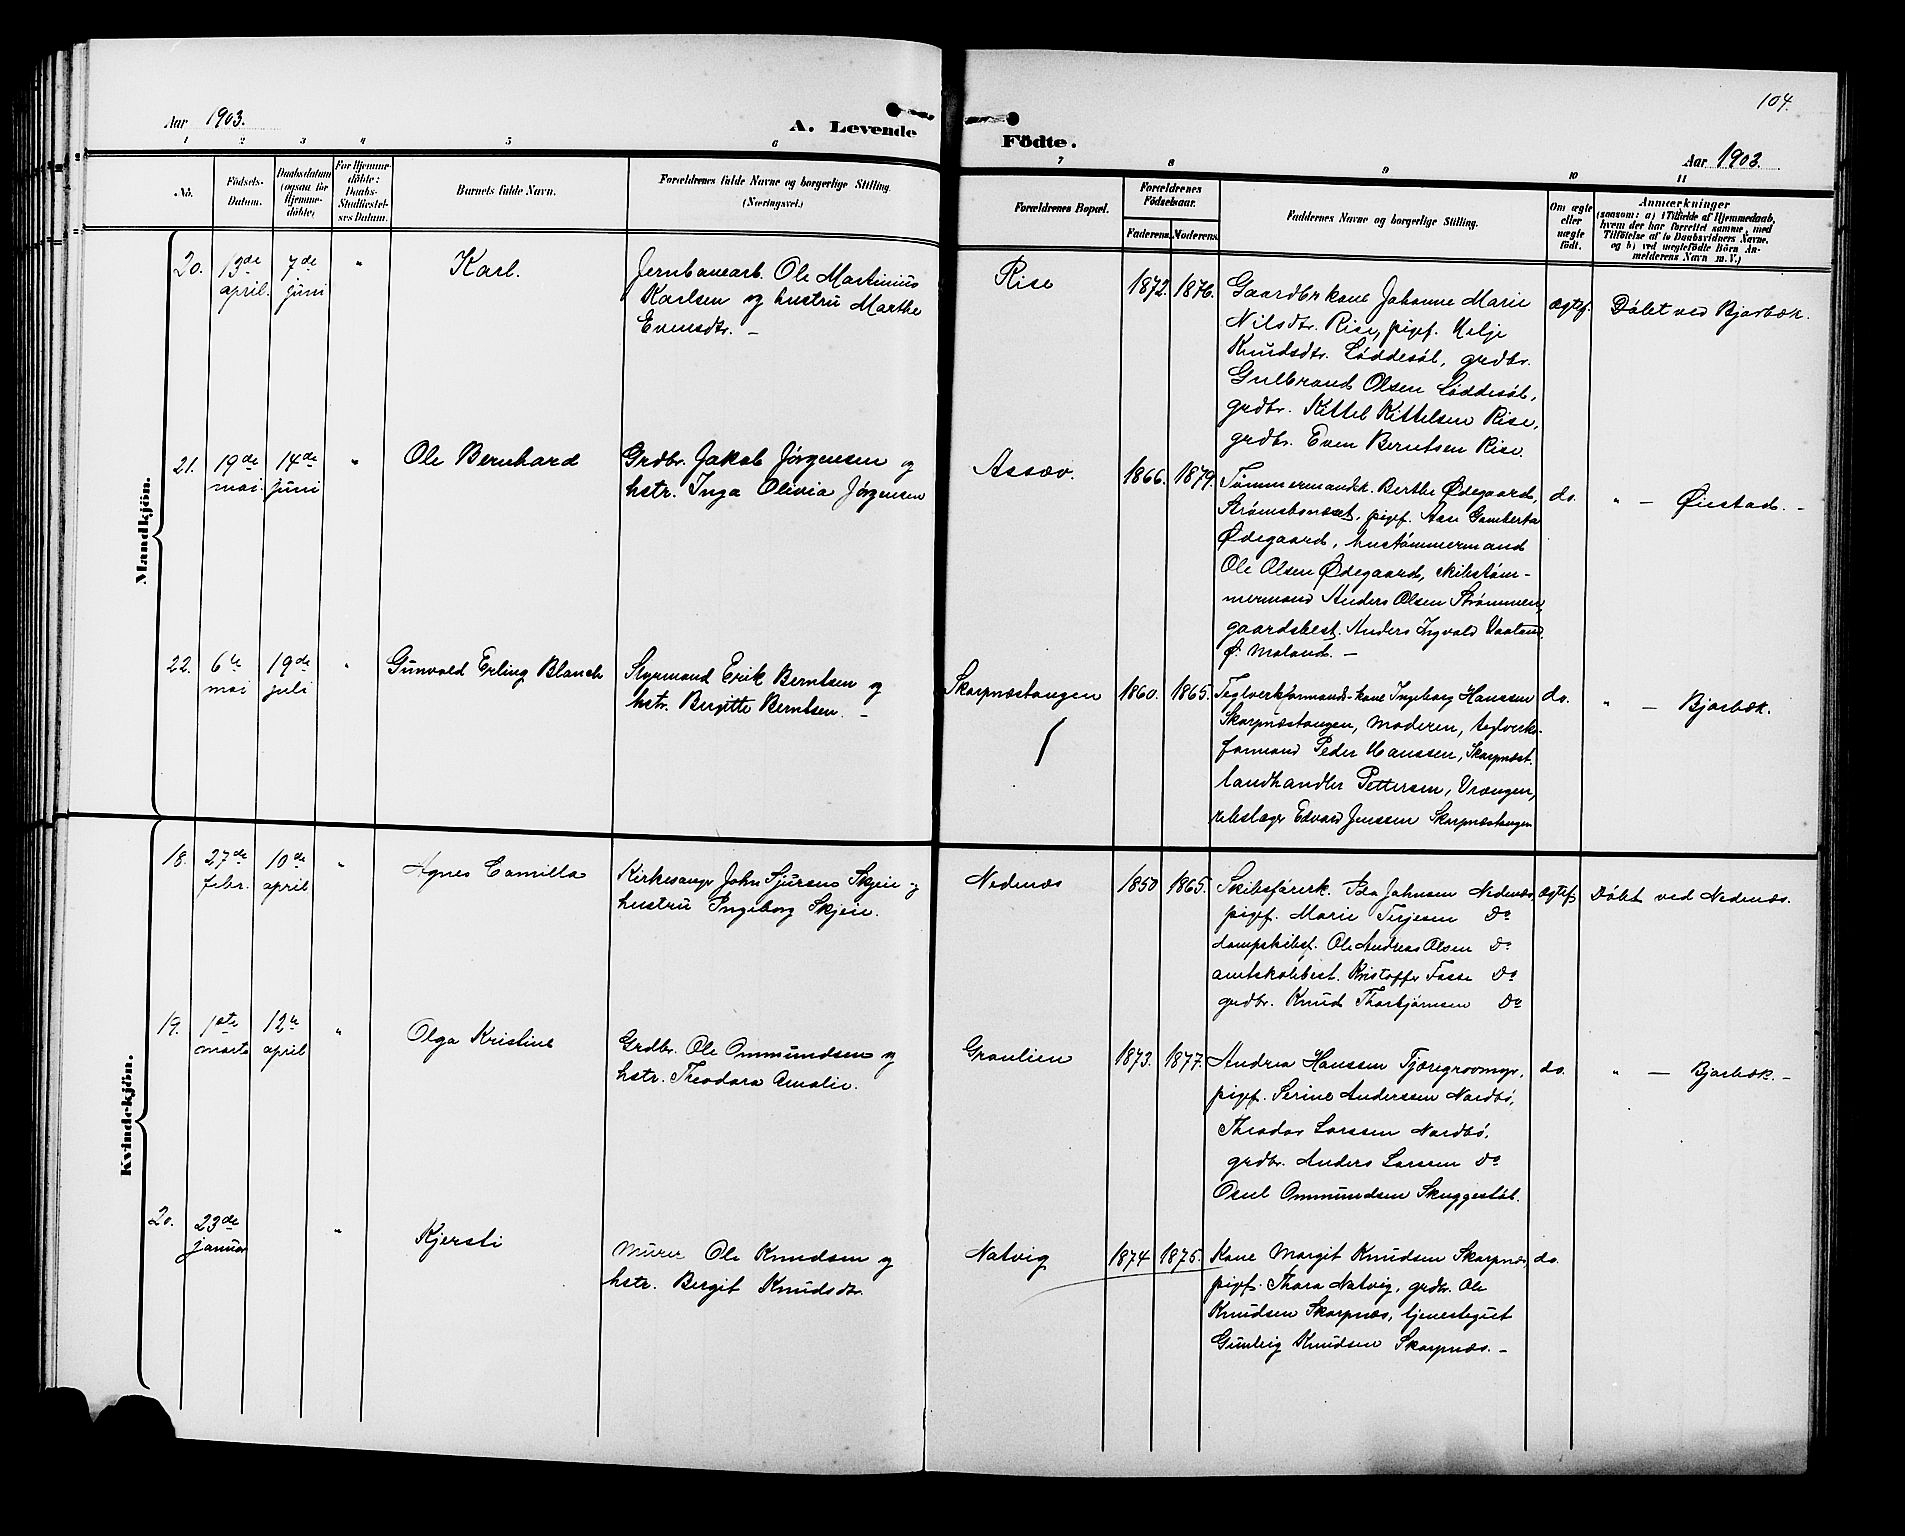 104.
Aar 1903.
A. Levende
Födte.
Aar 1903.
1 2 3 4 5 6 7 8 9 10 11
No.
Födsels-
Datum.
Daabsdatum
(ogsaa for
Hjemme-
döbte)
For Hjemme-
döbte:
Daabs-
Stadfæstel-
ses Datum.
Barnets fulde Navn.
Forældrenes fulde Navne og borgerlige Stilling.
(Næringsvei.)
Forældrenes Bopæl.
Forældrenes
Födselsaar.
Faderens.
Moderens.
Faddernes Navne og borgerlige Stilling.
Om ægte
eller
uægte
födt.
Anmærkninger
(saasom: a) i Tilfælde af Hjemmedaab,
hvem der har forrettet samme, med
Tilföielse af to Daabsvidners Navne,
og b) ved uægtefödte Börn An-
melderens Navn m. V.)
Mandkjön.
20.
13de
april.
7de
juni
"
Karl.
Jernbanearb. Ole Martinius
Karlsen og hustru Marthe
Evensdtr. –
Rise
1872.
1876.
Gaardbrkone Johanne Marie
Nilsdtr. Rise, pigef. Helje
Knudsdtr. Løddesøl, grdbr.
Gulbrand Olsen Løddesøl,
grdbr. Kittel Kittelsen Rise,
grdbr. Even Berntsen Rise.
ægtef.
Døbt ved Bjorbæk.
21.
19de
mai.
14de
juni
"
Ole Bernhard
Grdbr. Jakob Jørgensen og
hstr. Inga Olivia Jørgensen
Assæv.
1866.
1879.
Tømmermandsk. Berthe Ødegaard,
Strømsbonæset, pigef. Aase Gamberta
Ødegaard, hustømmermand
Ole Olsen Ødegaard, skibstøm-
mermand Anders Olsen Strømmen,
gaardsbest. Anders Ingvald
Ø. Moland. –
do.
" – Øiestad. –
22.
6te
mai
19de
juli
"
Gunvald Erling Blanch
Styrmand Erik Berntsen og
hstr. Birgitte Berntsen. –
Skarpnæstangen
1860.
1865.
Teglverkformands-kone Ingeborg Hanssen
Skarpnæstangen, Moderen, teglverks-
formand Peder Hanssen, Skarpnæst.
landhandler Pettersen, Vrængen,
rebslager Edvard Jenssen Skarpnæstangen
do.
" – Bjorbæk.
Kvindekjön.
18.
27de
febr.
10de
april
"
Agnes Camilla
Kirkesanger John Sjursen Skjeie og
hustru Ingeborg Skjeie.
Nedenæs
1850
1865.
Skibsførerk. Ida Johnsen Nedenæs,
pigef. Marie Terjesen Do
dampskibsf. Ole Andreas Olsen Do
amtskolebest. Kristoffer Fosse Do
grdbr. Knud Thorbjørnsen Do
ægtef
Døbt ved Nedenæs.
19.
1ste
marts
12te
april
"
Olga Kristine
Grdbr. Ole Ommundsen og
hstr. Theodora Amalie.
Graulien
1873.
1877.
Andrea Hanssen
pigef. Serine Anderssen Nordbø,
Theodor Larssen Nordbø,
grdbr. Anders Larssen Do
Osul Ommundsen Skuggestøl.
do.
" – Bjorbæk. –
20.
23de
januar
"
Kjersti
Murer Ole Knudsen og
hstr. Bergit Knudsdtr.
Natvig
1874
1875.
Kone Margit Knudsen Skarpnæs
pigef. Thora Natvig, grdbr. Ole
Knudsen Skarpnæs, tjenestegut
Gunleig Knudsen Skarpnæs. –
do.